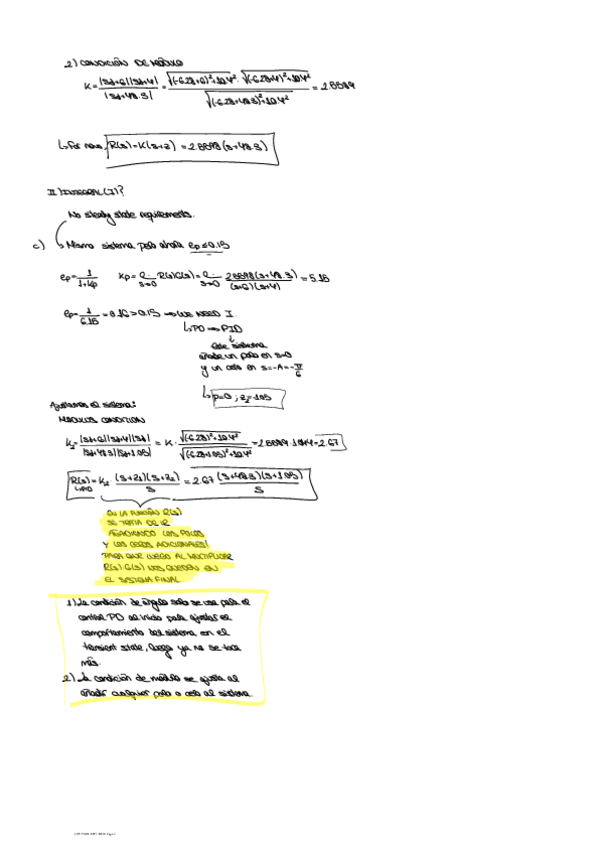 2) CONDICIÓN DE MÓDULO
K = |s+6||s+4| / |s+48.3| = √(-6.28+6)²+10.4² · √(-6.28+4)²+10.4² / √(-6.28+48.3)²+10.4² = 2.8899
↳ Por R(s) = K(s+z) = 2.8898(s+48.3)
II) INTEGRAL (I)?
No steady state requirements.
c) Mismo sistema pero ahora ep ≤ 0.15
ep = 1/(1+Kp) Kp = R(s)G(s) = 2.8898(s+48.3) / (s+6)(s+4) = 5.15
s→0 s→0
ep = 1/6.15 = 0.16 > 0.15 → WE NEED I
↳ PD → PID
Este sistema
añade un polo en s=0
y un cero en s=-A=-
↳ p=0 ; z2=1.05
Ajustamos el sistema:
MODULUS CONDITION
= |s+6||s+4||s| / |s+48.3||s+1.05| = K · √(6.28)²+10.4² / √(-6.28+1.05)²+10.4² = 2.67
R(s) = (s+z1)(s+z2) / s = 2.67 (s+48.3)(s+1.05) / s
EN LA FUNCIÓN R(s)
SE TRATA DE IR
AÑADIENDO LOS POLOS
Y LOS CEROS ADICIONALES!
PARA QUE LUEGO AL MULTIPLICAR
R(s)·G(s) NOS QUEDEN EN
EL SISTEMA FINAL
1) La condición de ángulo solo se usa para el
control PD al inicio para ajustar el
comportamiento del sistema en el
transient state, luego ya no se toca
más.
2) La condición de módulo se ajusta al
añadir cualquier polo o cero al sistema.